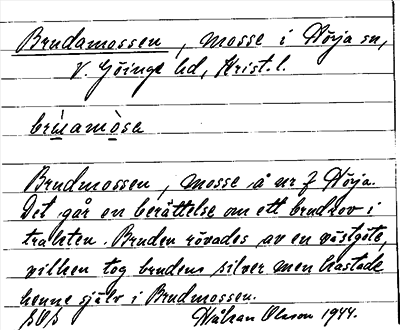 Brudamossen, mosse i Nörja sn,
V. Göinge hd, Krist. l.
brùamòse
Brudmossen, mosse å nr 7 Nörja.
Det går en berättelse om ett brudrov i
trakten. Bruden rövades av en västgöte,
vilken tog brudens silver men kastade
henne själv i Brudmossen.
Håkan Olsson 1944.